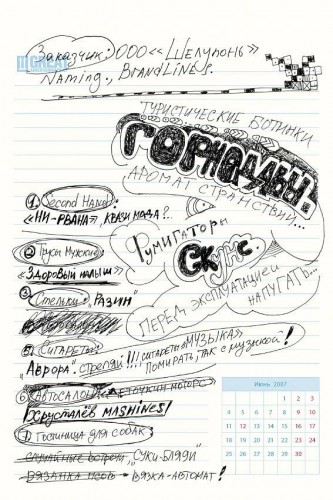 Заказчик: ООО «Шелупонь»
Naming., BRANDLINEs.
ТУРИСТИЧЕСКИЕ БОТИНКИ
ГОРНАДЫ.
АРОМАТ СТРАНСТВИЙ...
1. Second Hand:
«НИ-РВАНА», КРАЗИ МОДА?..
Румигаторы
Скунс.
ПЕРЕД ЭКСПЛУАТАЦИЕЙ
НАПУГАТЬ...
2 Трусы Мужские
«Здоровый малыш»
3 Стельки: „РАЗИН"
5. Сигареты:
„Аврора". Стреляй!!! Сигареты «МУЗЫКА»
Помирать, так с музыкой!
6 Автосалон:
Хрусталёв MASHINES!
7 Гостиница для собак:
Случайные встречи „Суки-Бляди"
ВЯЗКА-АВТОМАТ!
Июнь 2007
1 2 3
4 5 6 7 8 9 10
11 12 13 14 15 16 17
18 19 20 21 22 23 24
25 26 27 28 29 30